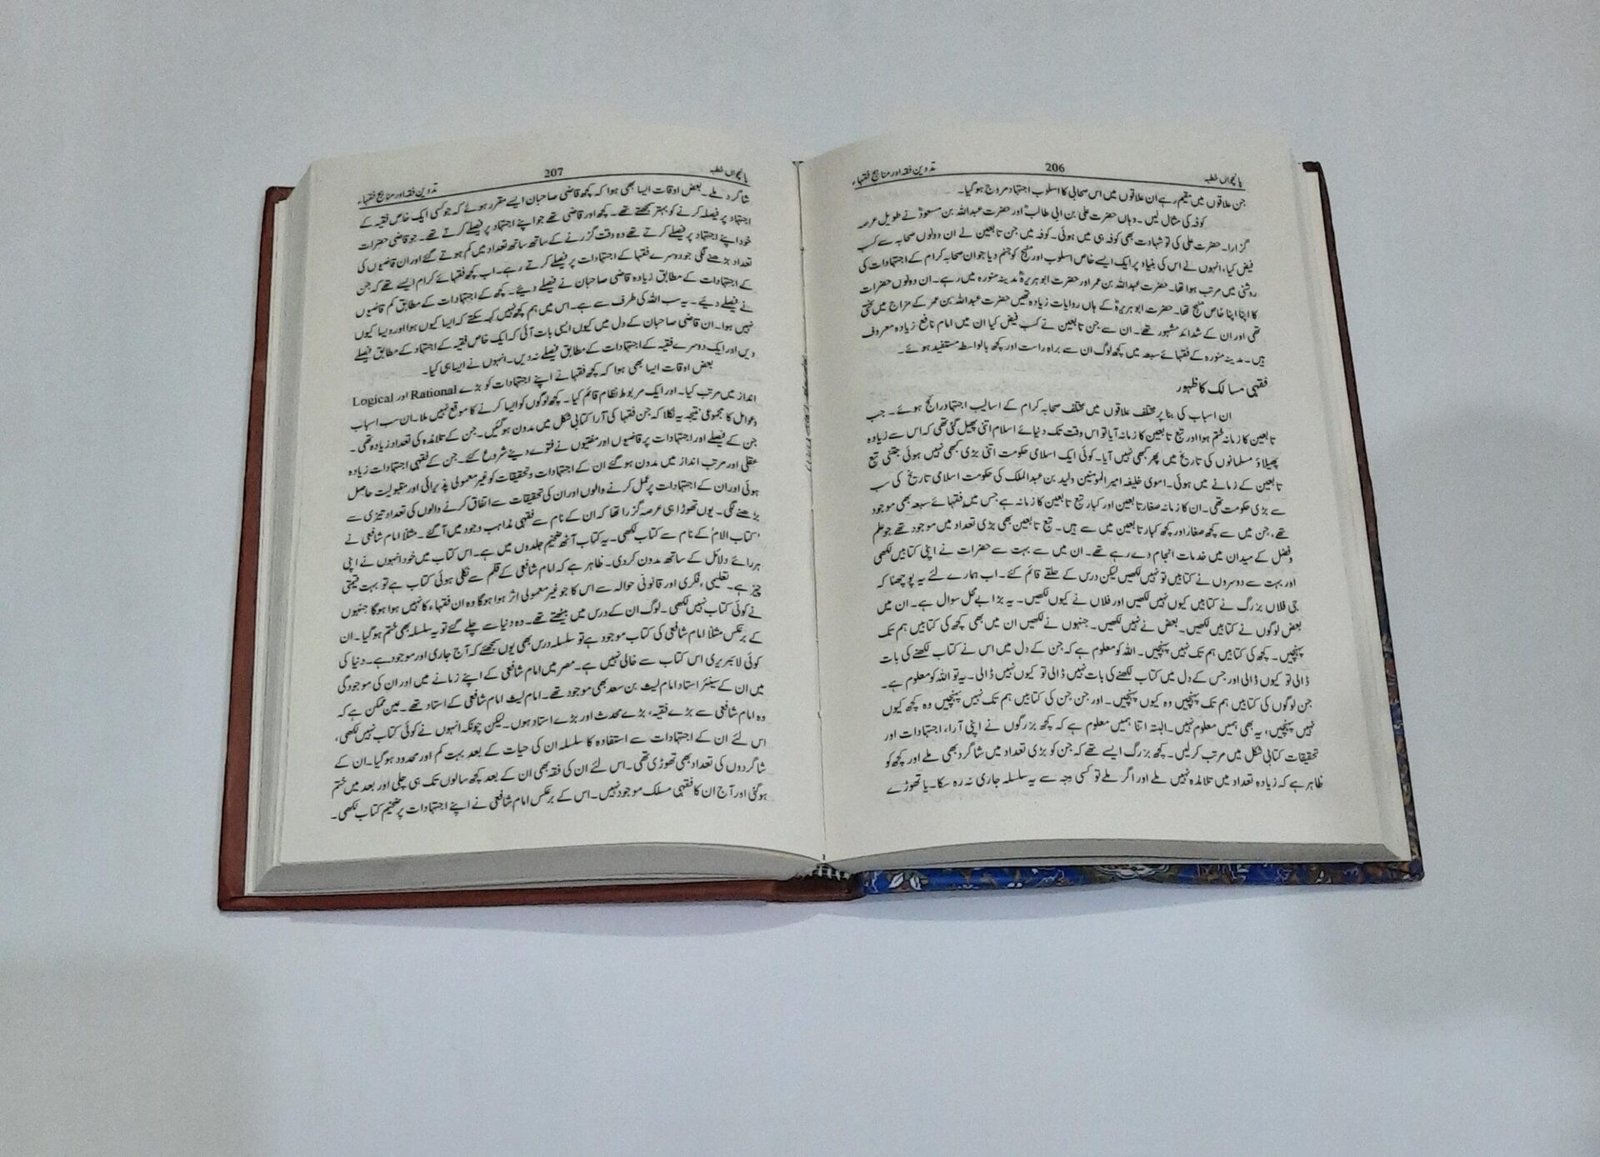 پانچواں خطبہ 206 تدوین فقہ اور مناہج فقہاء
جن علاقوں میں مقیم رہے ان علاقوں میں اس صحابی کا اسلوب اجتہاد مروج ہو گیا۔
کوفہ کی مثال لیں۔ وہاں حضرت علی بن ابی طالبؓ اور حضرت عبداللہ بن مسعودؓ نے طویل عرصہ
گزارا۔ حضرت علی کی تو شہادت بھی کوفہ ہی میں ہوئی۔ کوفہ میں جن تابعین نے ان دونوں صحابہ سے کسب
فیض کیا، انہوں نے اس کی بنیاد پر ایک ایسے خاص اسلوب اور منہج کو جنم دیا جو ان صحابہ کرام کے اجتہادات کی
روشنی میں مرتب ہوا تھا۔ حضرت عبداللہ بن عمر اور حضرت ابو ہریرہؓ مدینہ منورہ میں رہے۔ ان دونوں حضرات
کا اپنا اپنا خاص منہج تھا۔ حضرت ابو ہریرہؓ کے ہاں روایات زیادہ تھیں حضرت عبداللہ بن عمر کے مزاج میں سختی
تھی اور ان کے شدائد مشہور تھے۔ ان سے جن تابعین نے کسب فیض کیا ان میں امام نافع زیادہ معروف
ہیں۔ مدینہ منورہ کے فقہائے سبعہ میں کچھ لوگ ان سے براہ راست اور کچھ بالواسطہ مستفید ہوئے۔
فقہی مسالک کا ظہور
ان اسباب کی بنا پر مختلف علاقوں میں مختلف صحابہ کرام کے اسالیب اجتہاد رائج ہوئے۔ جب
تابعین کا زمانہ ختم ہوا اور تبع تابعین کا زمانہ آیا تو اس وقت تک دنیائے اسلام اتنی پھیل گئی تھی کہ اس سے زیادہ
پھیلاؤ مسلمانوں کی تاریخ میں پھر کبھی نہیں آیا۔ کوئی ایک اسلامی حکومت اتنی بڑی کبھی نہیں ہوئی جتنی تبع
تابعین کے زمانے میں ہوئی۔ اموی خلیفہ امیر المومنین ولید بن عبدالملک کی حکومت اسلامی تاریخ کی سب
سے بڑی حکومت تھی۔ ان کا زمانہ صغار تابعین اور کبار تبع تابعین کا زمانہ ہے جس میں فقہائے سبعہ بھی موجود
تھے، جن میں سے کچھ صغار اور کچھ کبار تابعین میں سے ہیں۔ تبع تابعین بھی بڑی تعداد میں موجود تھے جو علم
وفضل کے میدان میں خدمات انجام دے رہے تھے۔ ان میں سے بہت سے حضرات نے اپنی کتابیں لکھی
اور بہت سے دوسروں نے کتابیں تو نہیں لکھیں لیکن درس کے حلقے قائم کئے۔ اب ہمارے لئے یہ پوچھنا کہ
جی فلاں بزرگ نے کتابیں کیوں نہیں لکھیں اور فلاں نے کیوں لکھیں۔ یہ بڑا بے محل سوال ہے۔ ان میں
بعض لوگوں نے کتابیں لکھیں۔ بعض نے نہیں لکھیں۔ جنہوں نے لکھیں ان میں بھی کچھ کی کتابیں ہم تک
پہنچیں۔ کچھ کی کتابیں ہم تک نہیں پہنچیں۔ اللہ کو معلوم ہے کہ جن کے دل میں اس نے کتاب لکھنے کی بات
ڈالی تو کیوں ڈالی اور جس کے دل میں کتاب لکھنے کی بات نہیں ڈالی تو کیوں نہیں ڈالی۔ یہ تو اللہ کو معلوم ہے۔
جن لوگوں کی کتابیں ہم تک پہنچیں وہ کیوں پہنچیں۔ اور جن جن کی کتابیں ہم تک نہیں پہنچیں وہ کچھ کیوں
نہیں پہنچیں، یہ بھی ہمیں معلوم نہیں۔ البتہ اتنا ہمیں معلوم ہے کہ کچھ بزرگوں نے اپنی آراء، اجتہادات اور
تحقیقات کتابی شکل میں مرتب کرلیں۔ کچھ بزرگ ایسے تھے کہ جن کو بڑی تعداد میں شاگرد بھی ملے اور کچھ کو
ظاہر ہے کہ زیادہ تعداد میں تلامذہ نہیں ملے اور اگر ملے تو کسی وجہ سے یہ سلسلہ جاری نہ رہ سکا۔ یا تھوڑے
پانچواں خطبہ 207 تدوین فقہ اور مناہج فقہاء
شاگرد ملے۔ بعض اوقات ایسا بھی ہوا کہ کچھ قاضی صاحبان ایسے مقرر ہوئے کہ جو کسی ایک خاص فقیہ کے
اجتہاد پر فیصلہ کرنے کو بہتر سمجھتے تھے۔ کچھ اور قاضی تھے جو اپنے اجتہاد پر فیصلے کرتے تھے۔ جو قاضی حضرات
خود اپنے اجتہاد پر فیصلے کرتے تھے وہ وقت گزرنے کے ساتھ ساتھ تعداد میں کم ہوتے گئے اور ان قاضیوں کی
تعداد بڑھنے لگی جو دوسرے فقہا کے اجتہادات پر فیصلے کرتے رہے۔ اب کچھ فقہائے کرام ایسے تھے کہ جن
کے اجتہادات کے مطابق زیادہ قاضی صاحبان نے فیصلے دیئے۔ کچھ کے اجتہادات کے مطابق کم قاضیوں
نے فیصلے دیئے۔ یہ سب اللہ کی طرف سے ہے۔ اس میں ہم کچھ نہیں کہہ سکتے کہ ایسا کیوں ہوا اور ویسا کیوں
نہیں ہوا۔ ان قاضی صاحبان کے دل میں کیوں ایسی بات آئی کہ ایک خاص فقیہ کے اجتہاد کے مطابق فیصلے
دیں اور ایک دوسرے فقیہ کے اجتہادات کے مطابق فیصلے نہ دیں۔ انہوں نے ایسا ہی کیا۔
بعض اوقات ایسا بھی ہوا کہ کچھ فقہا نے اپنے اجتہادات کو بڑے Rational اور Logical
انداز میں مرتب کیا۔ اور ایک مربوط نظام قائم کیا۔ کچھ لوگوں کو ایسا کرنے کا موقع نہیں ملا۔ ان سب اسباب
وعوامل کا مجموعی نتیجہ یہ نکلا کہ جن فقہا کی آرا کتابی شکل میں مدون ہوگئیں۔ جن کے تلامذہ کی تعداد زیادہ تھی۔
جن کے فیصلے اور اجتہادات پر قاضیوں اور مفتیوں نے فتوے دینے شروع کئے۔ جن کے فقہی اجتہادات زیادہ
عقلی اور مرتب انداز میں مدون ہو گئے ان کے اجتہادات وتحقیقات کو غیر معمولی پذیرائی اور مقبولیت حاصل
ہوئی اور ان کے اجتہادات پر عمل کرنے والوں اور ان کی تحقیقات سے اتفاق کرنے والوں کی تعداد تیزی سے
بڑھنے لگی۔ یوں تھوڑا ہی عرصہ گزرا تھا کہ ان کے نام سے فقہی مذاہب وجود میں آگئے۔ مثلاً امام شافعی نے
'کتاب الام' کے نام سے کتاب لکھی۔ یہ کتاب آٹھ ضخیم جلدوں میں ہے۔ اس کتاب میں خود انہوں نے اپنی
ہر رائے دلائل کے ساتھ مدون کردی۔ ظاہر ہے کہ امام شافعی کے قلم سے نکلی ہوئی کتاب ہے تو بہت قیمتی
چیز ہے۔ تعلیمی، فکری اور قانونی حوالہ سے اس کا جو غیر معمولی اثر ہوا ہوگا وہ ان فقہاء کا نہیں ہوا ہوگا جنہوں
نے کوئی کتاب نہیں لکھی۔ لوگ ان کے درس میں بیٹھتے تھے۔ وہ دنیا سے چلے گئے تو یہ سلسلہ بھی ختم ہو گیا۔ ان
کے برعکس مثلاً امام شافعی کی کتاب موجود ہے تو سلسلہ درس بھی یوں سمجھئے کہ آج جاری اور موجود ہے۔ دنیا کی
کوئی لائبریری اس کتاب سے خالی نہیں ہے۔ مصر میں امام شافعی کے اپنے زمانے میں اور ان کی موجودگی
میں ان کے سینئر استاد امام لیث بن سعد بھی موجود تھے۔ امام لیث امام شافعی کے استاد تھے۔ عین ممکن ہے کہ
وہ امام شافعی سے بڑے فقیہ، بڑے محدث اور بڑے استاد ہوں۔ لیکن چونکہ انہوں نے کوئی کتاب نہیں لکھی،
اس لئے ان کے اجتہادات سے استفادہ کا سلسلہ ان کی حیات کے بعد بہت کم اور محدود ہو گیا۔ ان کے
شاگردوں کی تعداد بھی تھوڑی تھی۔ اس لئے ان کی فقہ بھی ان کے بعد کچھ سالوں تک ہی چلی اور بعد میں ختم
ہوگئی اور آج ان کا فقہی مسلک موجود نہیں۔ اس کے برعکس امام شافعی نے اپنے اجتہادات پر ضخیم کتاب لکھی۔